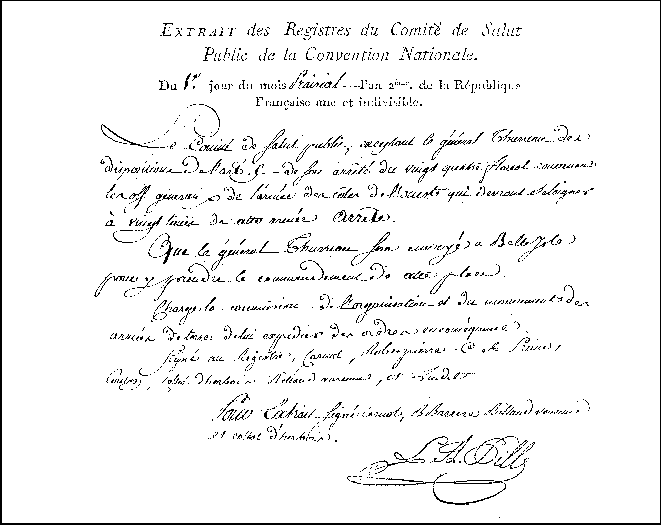 EXTRAIT des Registres du Comité de Salut
Public de la Convention Nationale.
Du 1er jour du mois Prairial l'an 2ème. de la République
Française une et indivisible.
Le Comité de Salut public, exceptant le général Thurreau des
dispositions de l'art. de son arrêté du vingt quatre floréal concernant
les off. généraux de l'armée des côtes de l'ouest qui devront s'éloigner
à vingt lieues de cette armée Arrête
Que le général Thurreau sera envoyé à Belle Isle
pour y prendre le commandement de cette place.
Charge la commission de l'organisation et du mouvement des
armées de terre de lui expédier des ordres en conséquence.
Signé au Registre, Carnot, Robespierre, C. A. Prieur,
Couthon, Collot d'herbois Billaud varennes, et Lindet
Pour Extrait Signé Carnot, B. Barere Billaud varennes
et collot d'herbois.